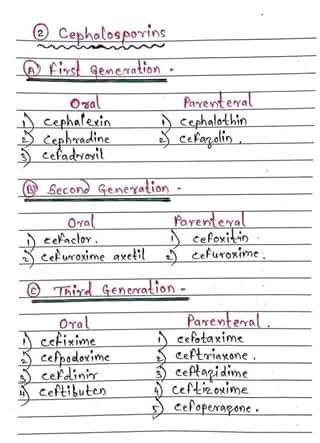 ② Cephalosporins
Ⓐ First Generation -
Oral Parenteral
1) cephalexin 1) cephalothin
2) cephradine 2) cefazolin.
3) cefadroxil
Ⓑ Second Generation -
Oral Parenteral
1) cefaclor. 1) cefoxitin
2) cefuroxime axetil 2) cefuroxime.
Ⓒ Third Generation -
Oral Parenteral.
1) cefixime 1) cefotaxime
2) cefpodoxime 2) ceftriaxone.
3) cefdinir 3) ceftazidime
4) ceftibuten 4) ceftizoxime
5) cefoperazone.